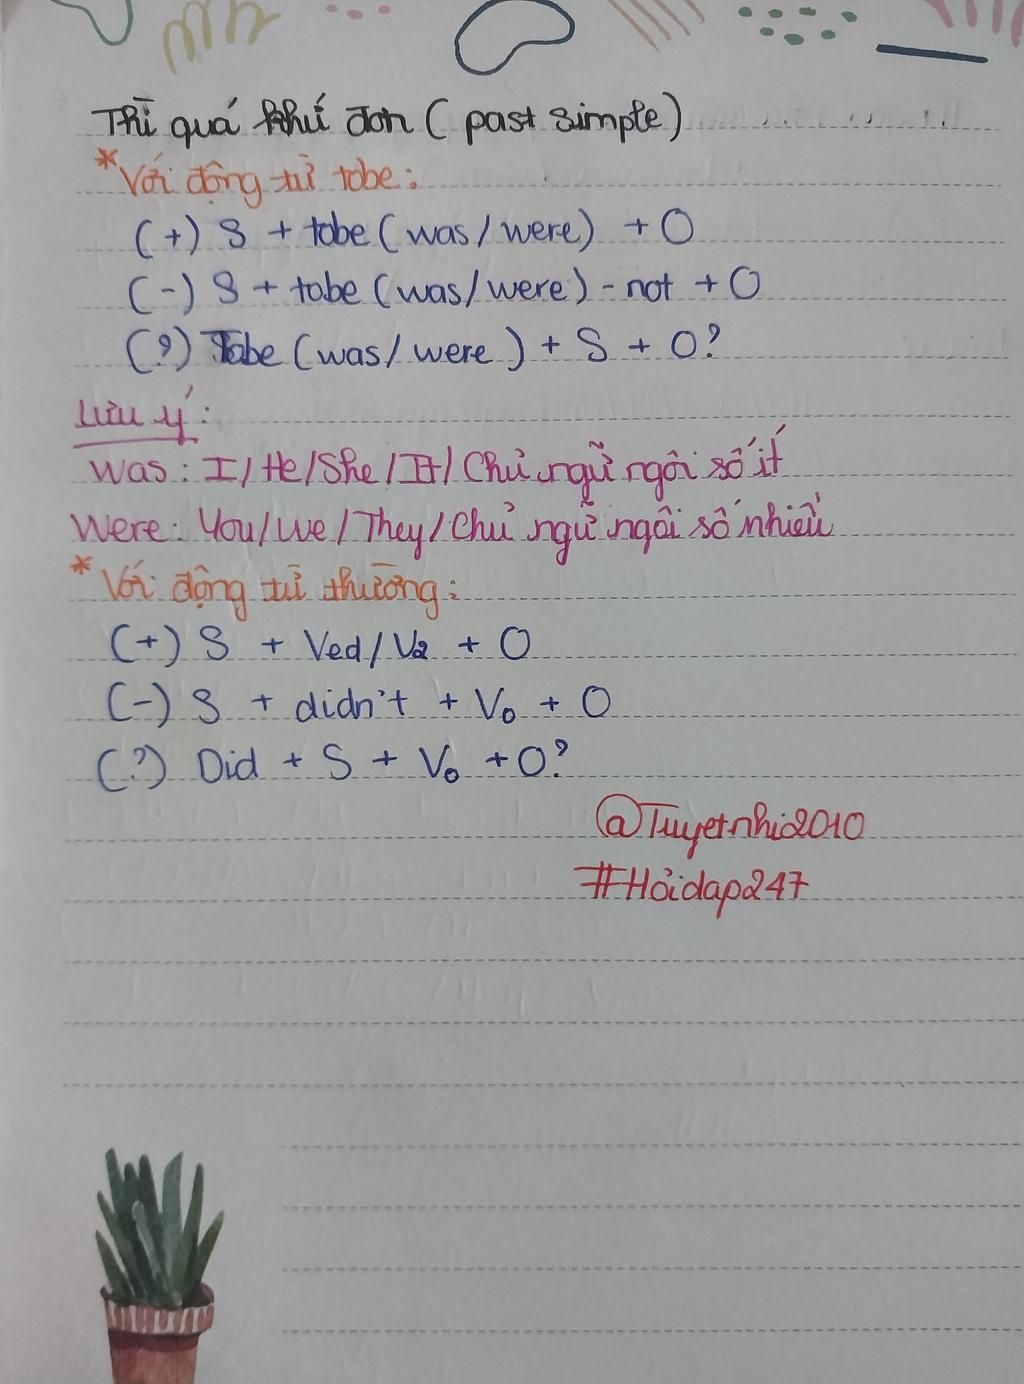 Thì quá khứ đơn ( past simple )
* Với động từ tobe :
(+) S + tobe ( was / were ) + O
(-) S + tobe ( was / were ) - not + O
(?) Tobe ( was / were ) + S + O?
Lưu ý :
Was : I / He / She / It / Chủ ngữ ngôi số ít
Were : You / We / They / Chủ ngữ ngôi số nhiều
* Với động từ thường :
(+) S + Ved / V2 + O
(-) S + didn't + V₀ + O
(?) Did + S + V₀ + O?
@Tuyetnhi2010
#Hỏidap247